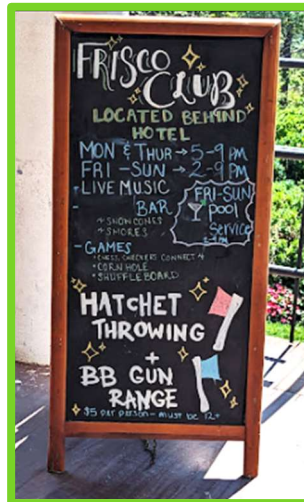 FRISCO
CLUB
LOCATED BEHIND
HOTEL
MON & THUR → 5-9 PM
FRI - SUN → 2-9 PM
LIVE MUSIC
- BAR
SNOW CONES
SMORES
FRI-SUN
pool
Service
- GAMES
• CHESS, CHECKERS, CONNECT 4
• CORN HOLE
• SHUFFLE BOARD
HATCHET
THROWING
+
BB GUN
RANGE
$5 per person - must be 12+